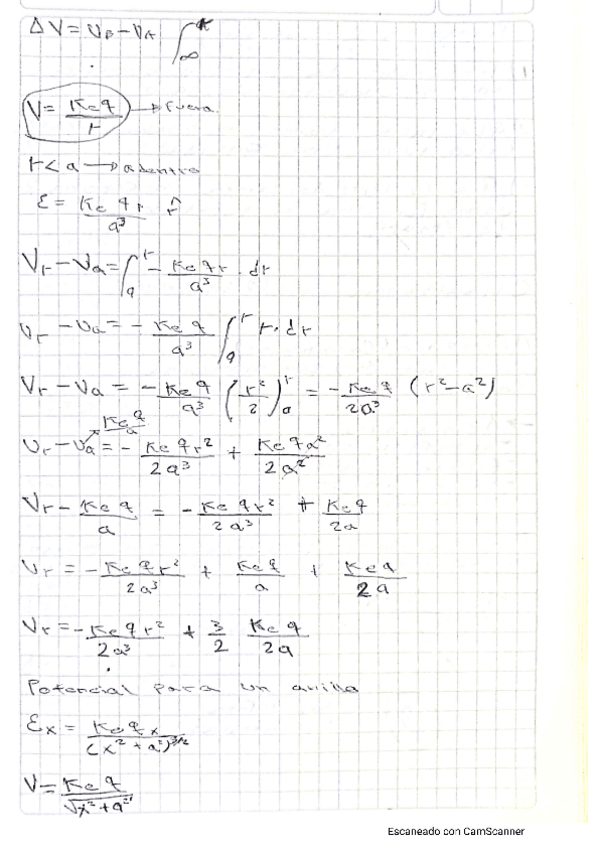 ΔV = V_B - V_A ∫_∞^r
V = Ke q / r → Fuera
r < a → adentro
E = Ke q r / a³ r̂
V_r - V_a = ∫_a^r - Ke q r / a³ · dr
V_r - V_a = - Ke q / a³ ∫_a^r r · dr
V_r - V_a = - Ke q / a³ (r² / 2)_a^r = - Ke q / 2a³ (r² - a²)
Ke q / a
V_r - V_a = - Ke q r² / 2a³ + Ke q a² / 2a²
V_r - Ke q / a = - Ke q r² / 2a³ + Ke q / 2a
V_r = - Ke q r² / 2a³ + Ke q / a + Ke q / 2a
V_r = - Ke q r² / 2a³ + 3/2 Ke q / 2a
Potencial para un anillo
Ex = Ke q x / (x² + a²)^3/2
V = Ke q / √x² + a²
Escaneado con CamScanner